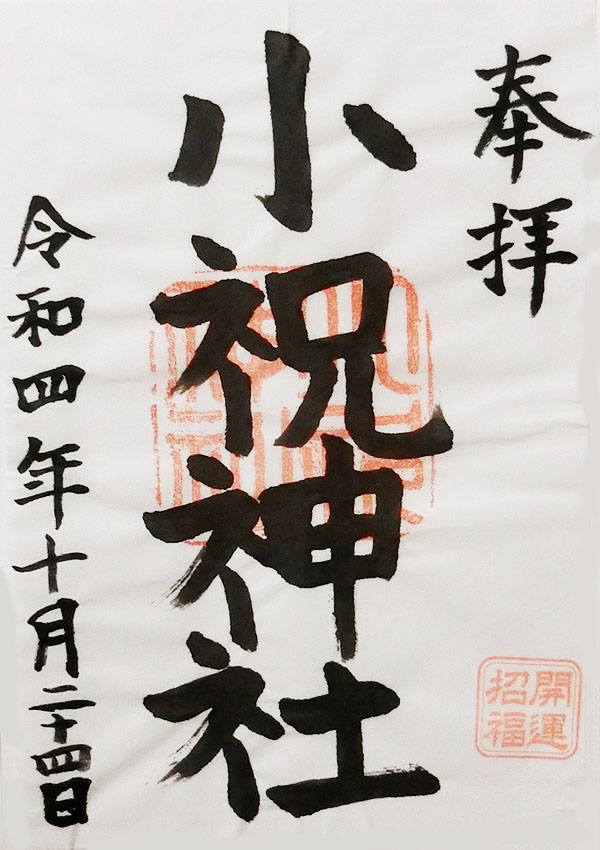 奉拝
小祝神社
令和四年十月二十四日
開運
招福